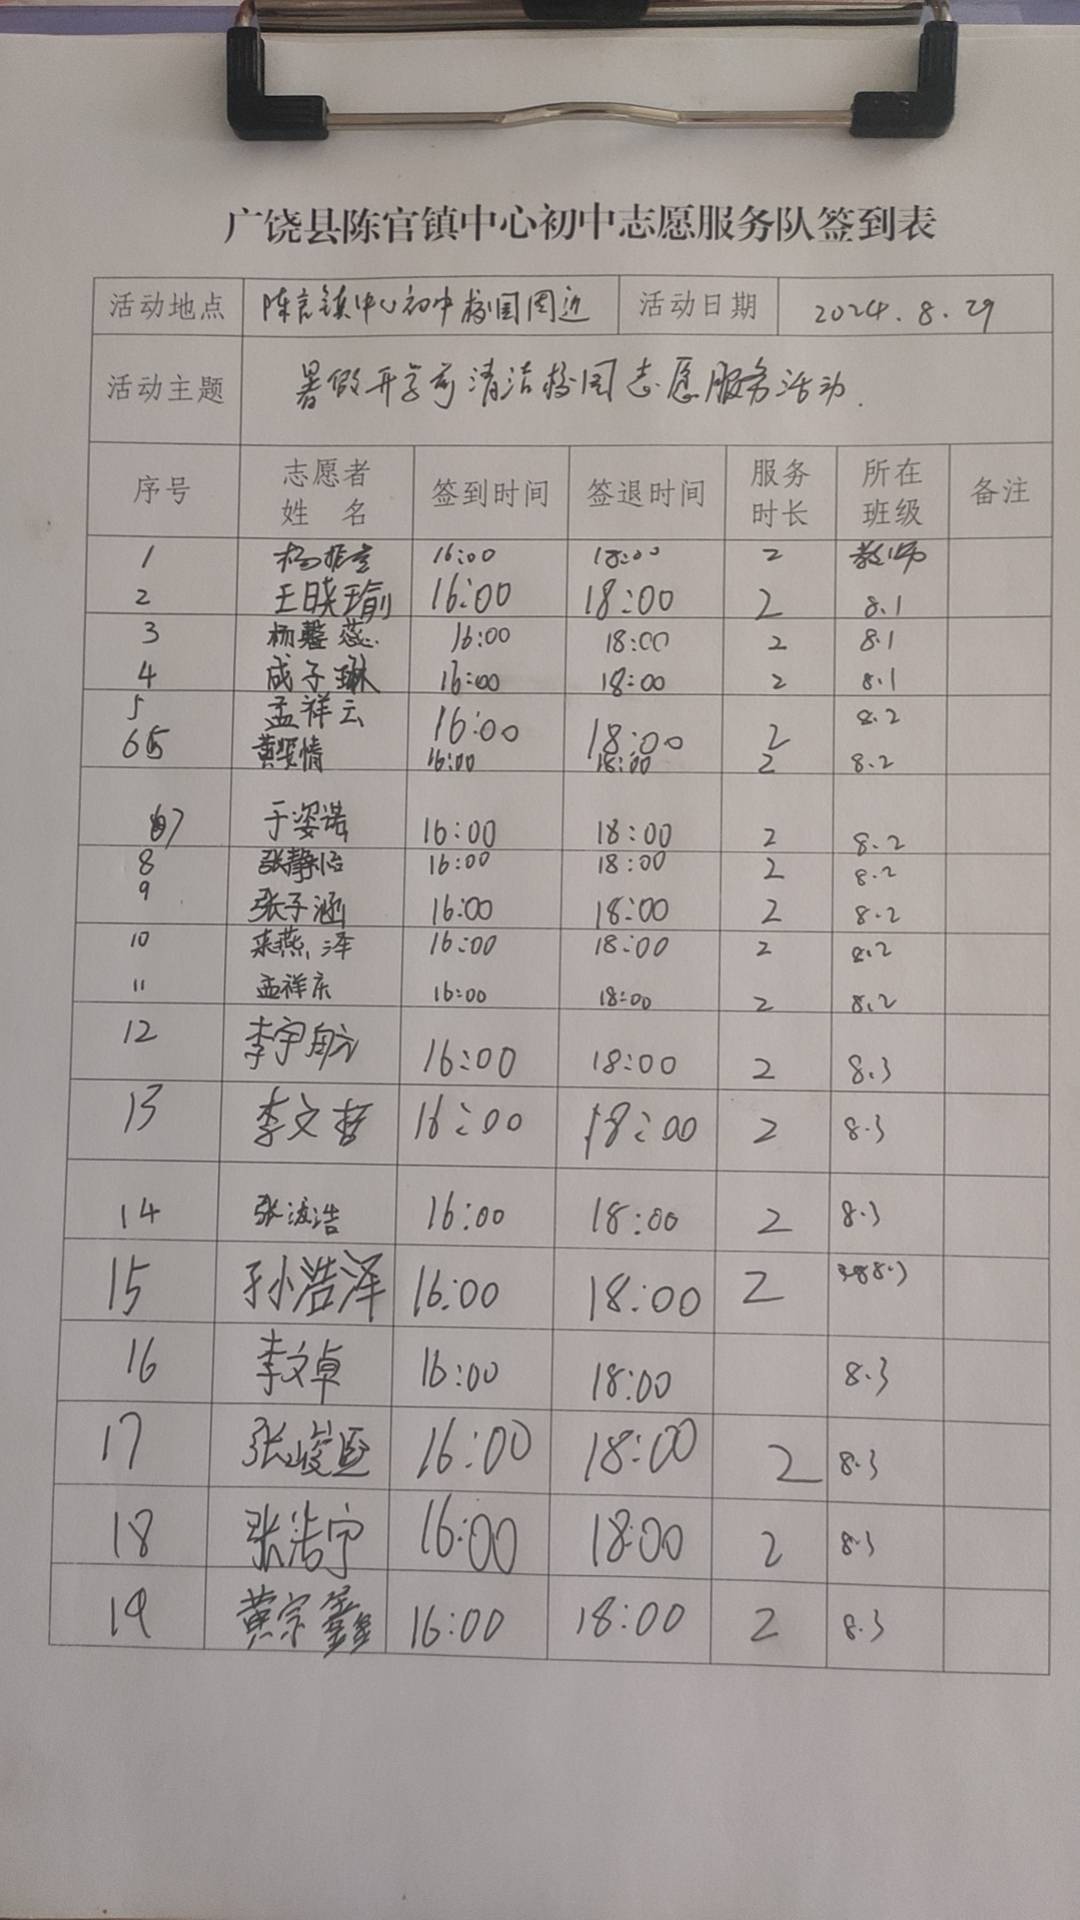 广饶县陈官镇中心初中志愿服务队签到表
活动地点 陈官镇中心初中校园周边 活动日期 2024.8.29
活动主题 暑假开学前清洁校园志愿服务活动.
序号 志愿者姓名 签到时间 签退时间 服务时长 所在班级 备注
1 16:00 18:00 2 教师
2 王晓瑜 16:00 18:00 2 8.1
3 杨馨蕊 16:00 18:00 2 8.1
4 成子琳 16:00 18:00 2 8.1
5 孟祥云 16:00 18:00 2 8.2
6 16:00 18:00 2 8.2
7 于姿诺 16:00 18:00 2 8.2
8 张静怡 16:00 18:00 2 8.2
9 张子涵 16:00 18:00 2 8.2
10 来燕泽 16:00 18:00 2 8.2
11 孟祥东 16:00 18:00 2 8.2
12 李宇航 16:00 18:00 2 8.3
13 李文哲 16:00 18:00 2 8.3
14 16:00 18:00 2 8.3
15 孙浩泽 16:00 18:00 2 8.3
16 李文卓 16:00 18:00 8.3
17 16:00 18:00 2 8.3
18 张浩宇 16:00 18:00 2 8.3
19 黄宗鑫 16:00 18:00 2 8.3